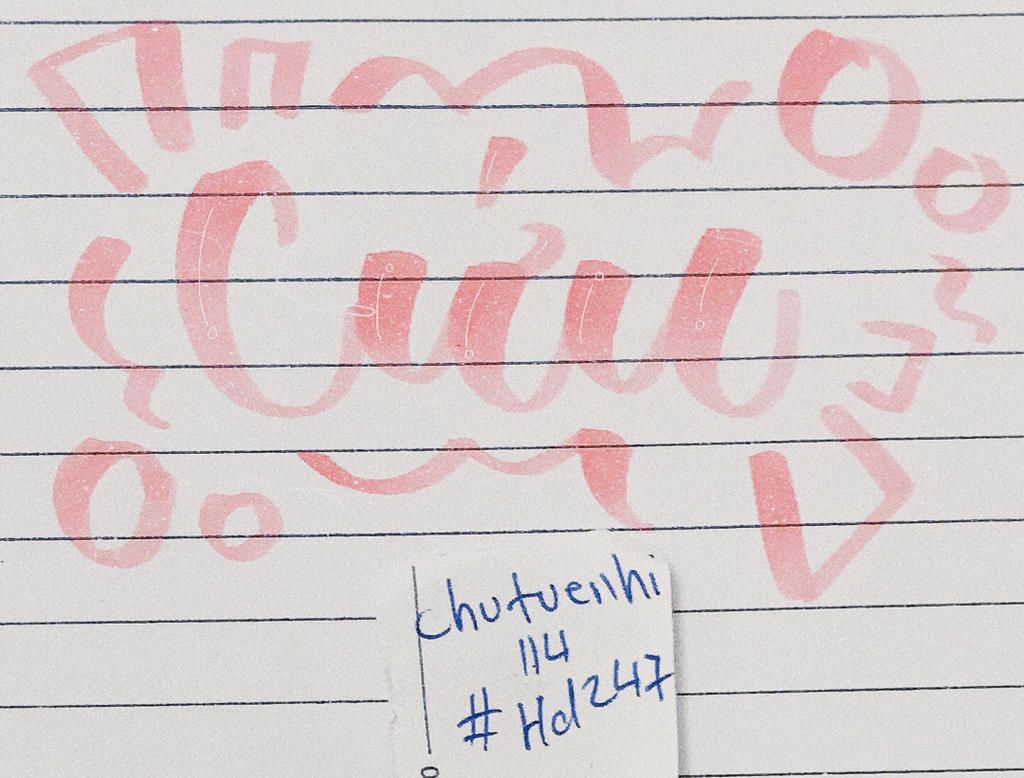 Cứu
chutuenhi
114
#Hd247